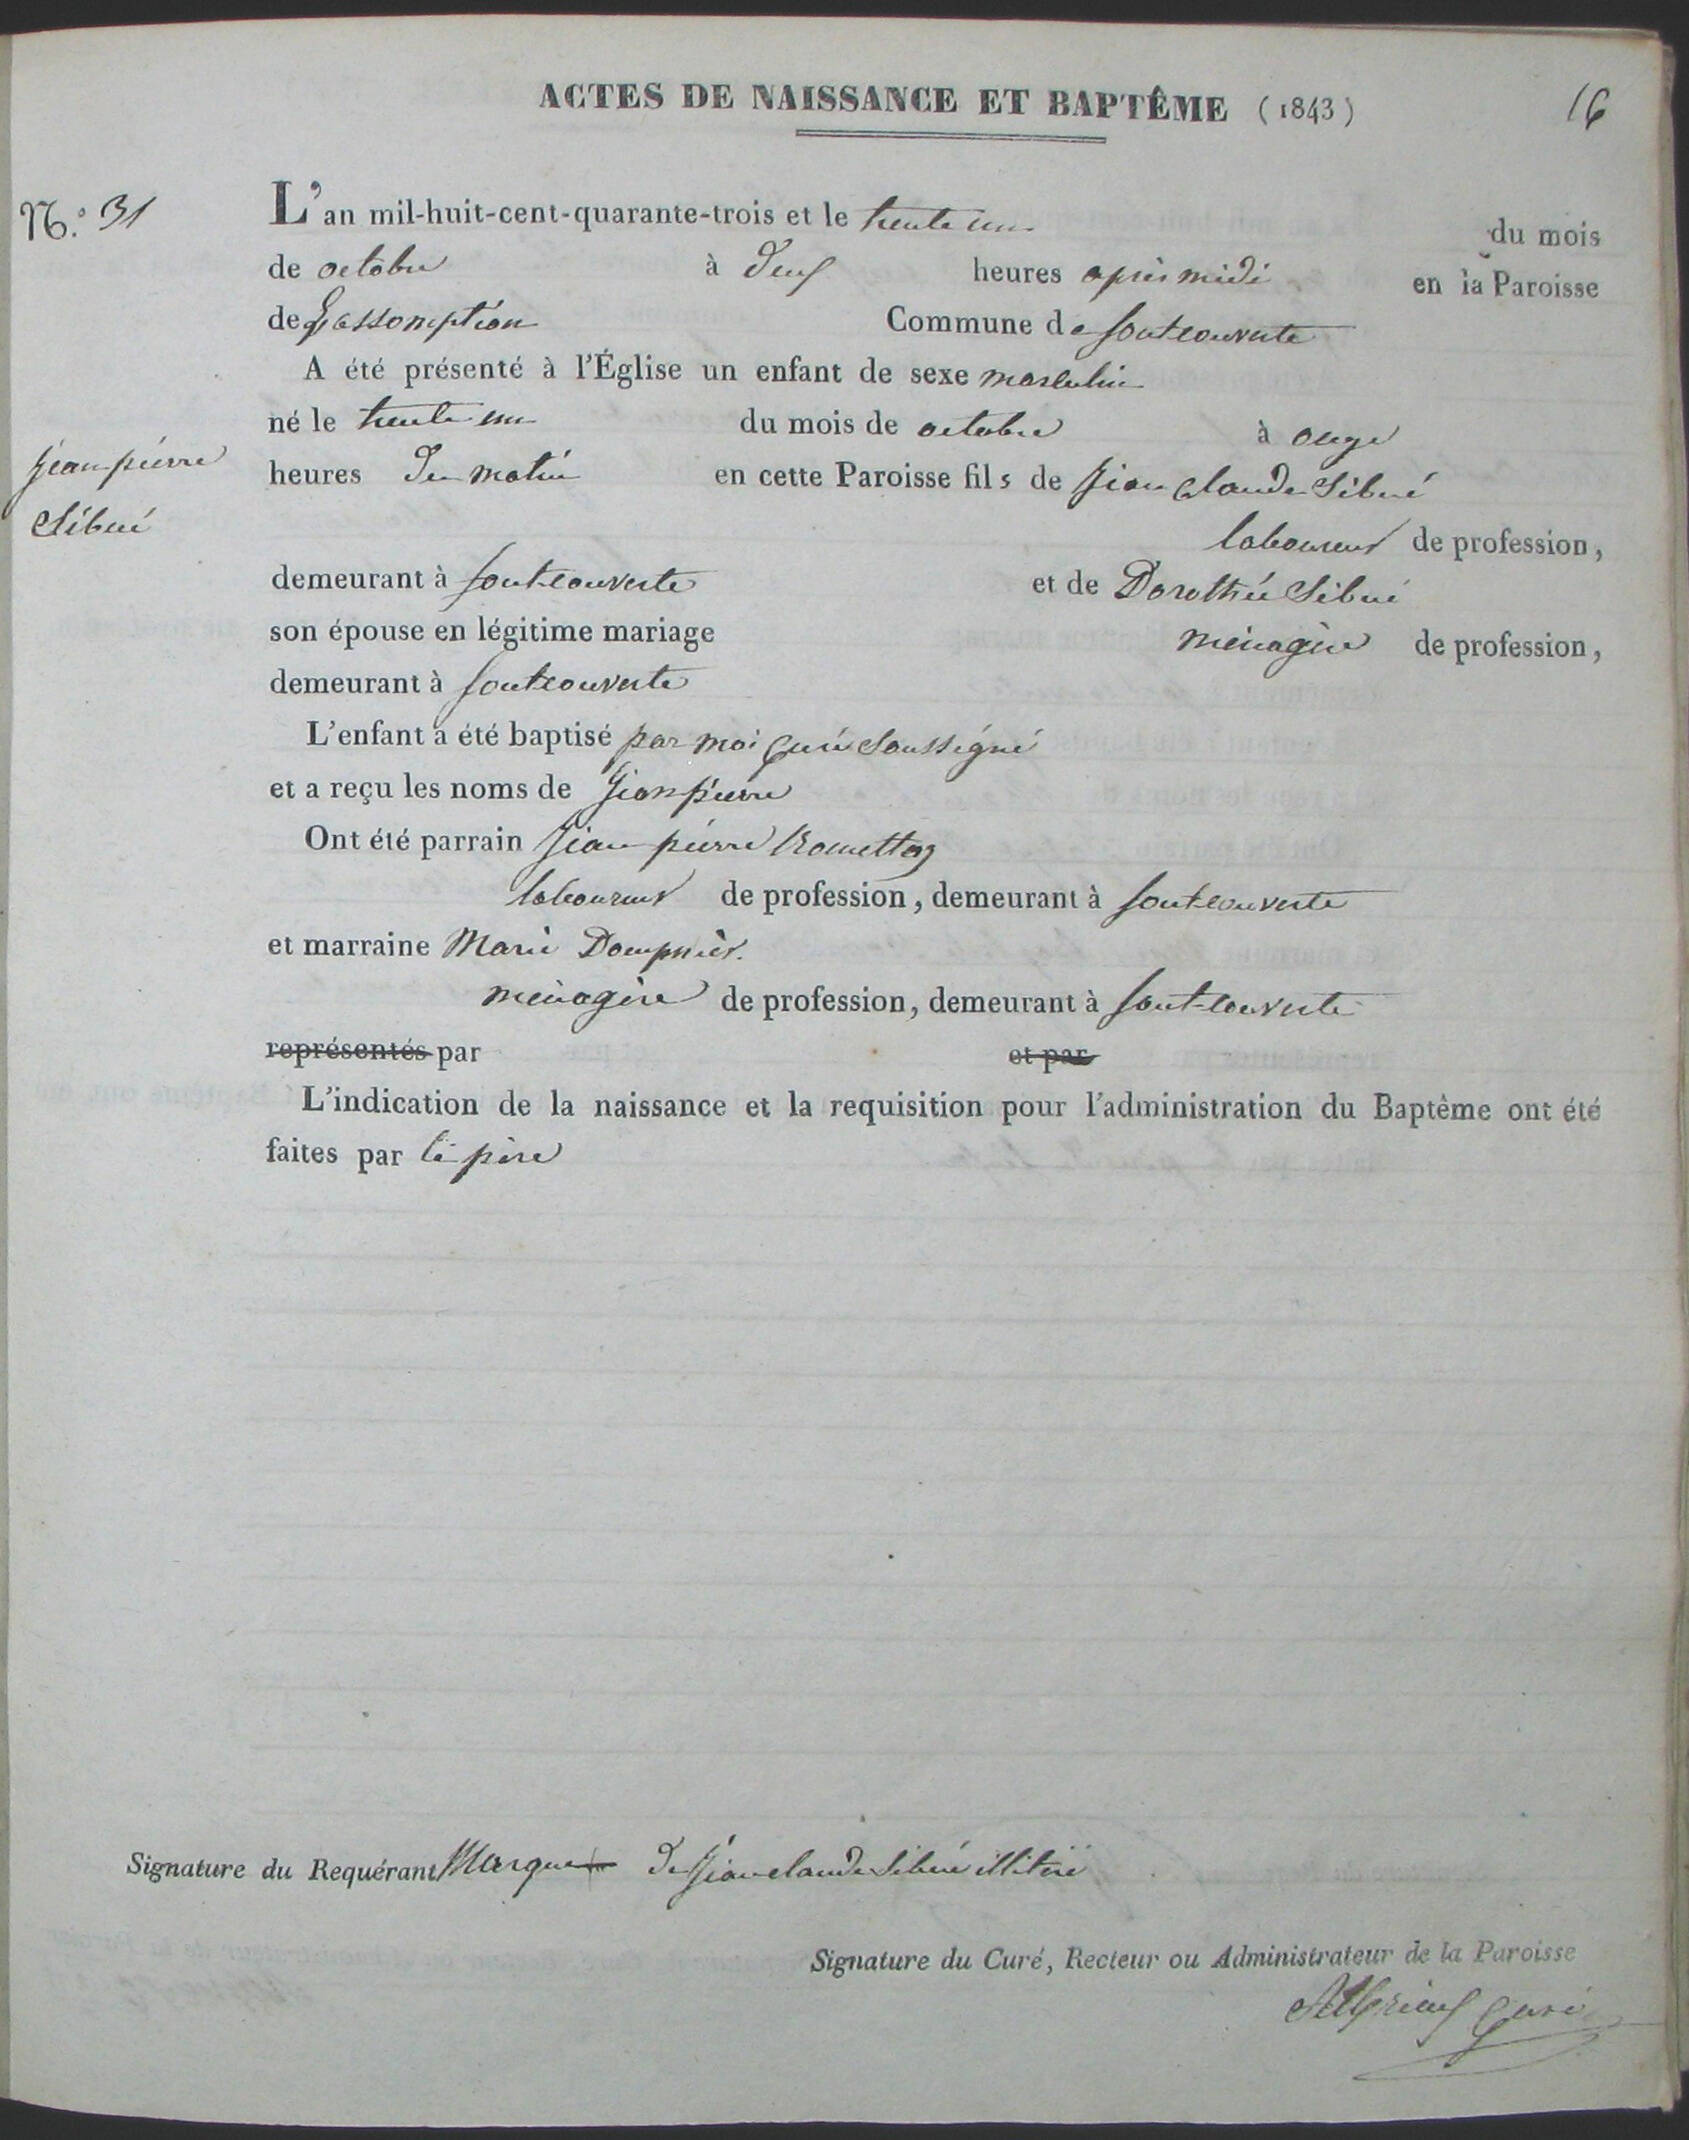 ACTES DE NAISSANCE ET BAPTÊME (1843)
16
N.º 31
L'an mil-huit-cent-quarante-trois et le trente un du mois
de octobre à deux heures après midi en la Paroisse
de L'assomption Commune de fontcouverte
A été présenté à l'Église un enfant de sexe masculin
né le trente un du mois de octobre à onze
jean pierre
Sibué
heures du matin en cette Paroisse fils de jean claude Sibué
laboureur de profession,
demeurant à fontcouverte et de Dorothée Sibué
son épouse en légitime mariage ménagère de profession,
demeurant à fontcouverte
L'enfant a été baptisé par moi Curé Soussigné
et a reçu les noms de jean pierre
Ont été parrain jean pierre
laboureur de profession, demeurant à fontcouverte
et marraine Marie Dompnier.
ménagère de profession, demeurant à font-couverte
représentés par et par
L'indication de la naissance et la requisition pour l'administration du Baptême ont été
faites par le père
Signature du Requérant Marque + de jean claude Sibué illitéré
Signature du Curé, Recteur ou Administrateur de la Paroisse
Curé